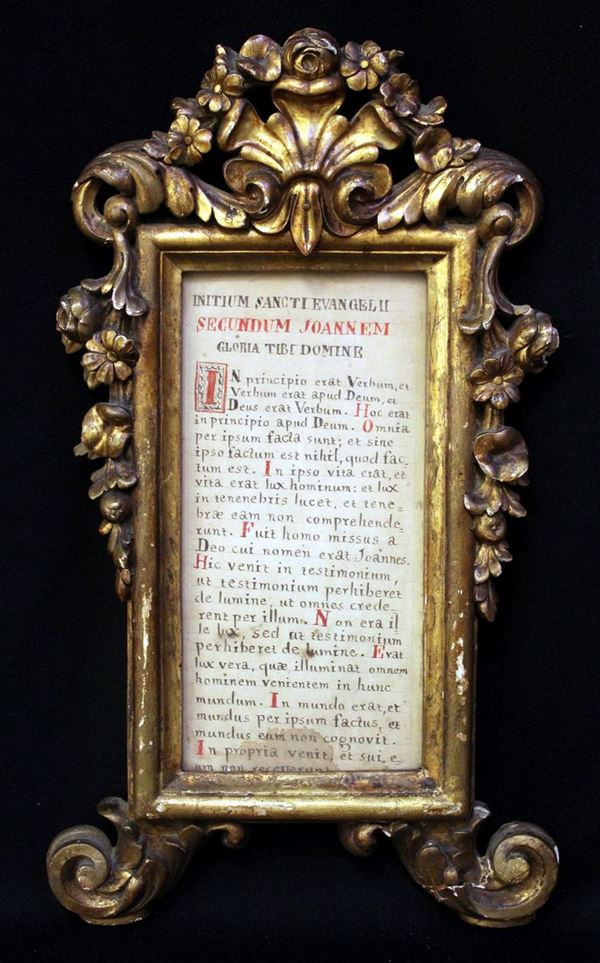 INITIUM SANCTI EVANGELII
SECUNDUM JOANNEM
GLORIA TIBI DOMINE
IN principio erat Verbum, et
Verbum erat apud Deum, et
Deus erat Verbum. Hoc erat
in principio apud Deum. Omnia
per ipsum facta sunt; et sine
ipso factum est nihil, quod fac-
tum est. In ipso vita erat, et
vita erat lux hominum: et lux
in tenenebris lucet, et tene-
bræ eam non comprehende-
runt. Fuit homo missus a
Deo cui nomen erat Joannes.
Hic venit in testimonium,
ut testimonium perhiberet
de lumine, ut omnes crede-
rent per illum. Non era il
le lux, sed ut testimonium
perhiberet de lumine. Erat
lux vera, quæ illuminat omnem
hominem venientem in hunc
mundum. In mundo erat, et
mundus per ipsum factus, et
mundus eum non cognovit.
In propria venit, et sui e
um non receperunt